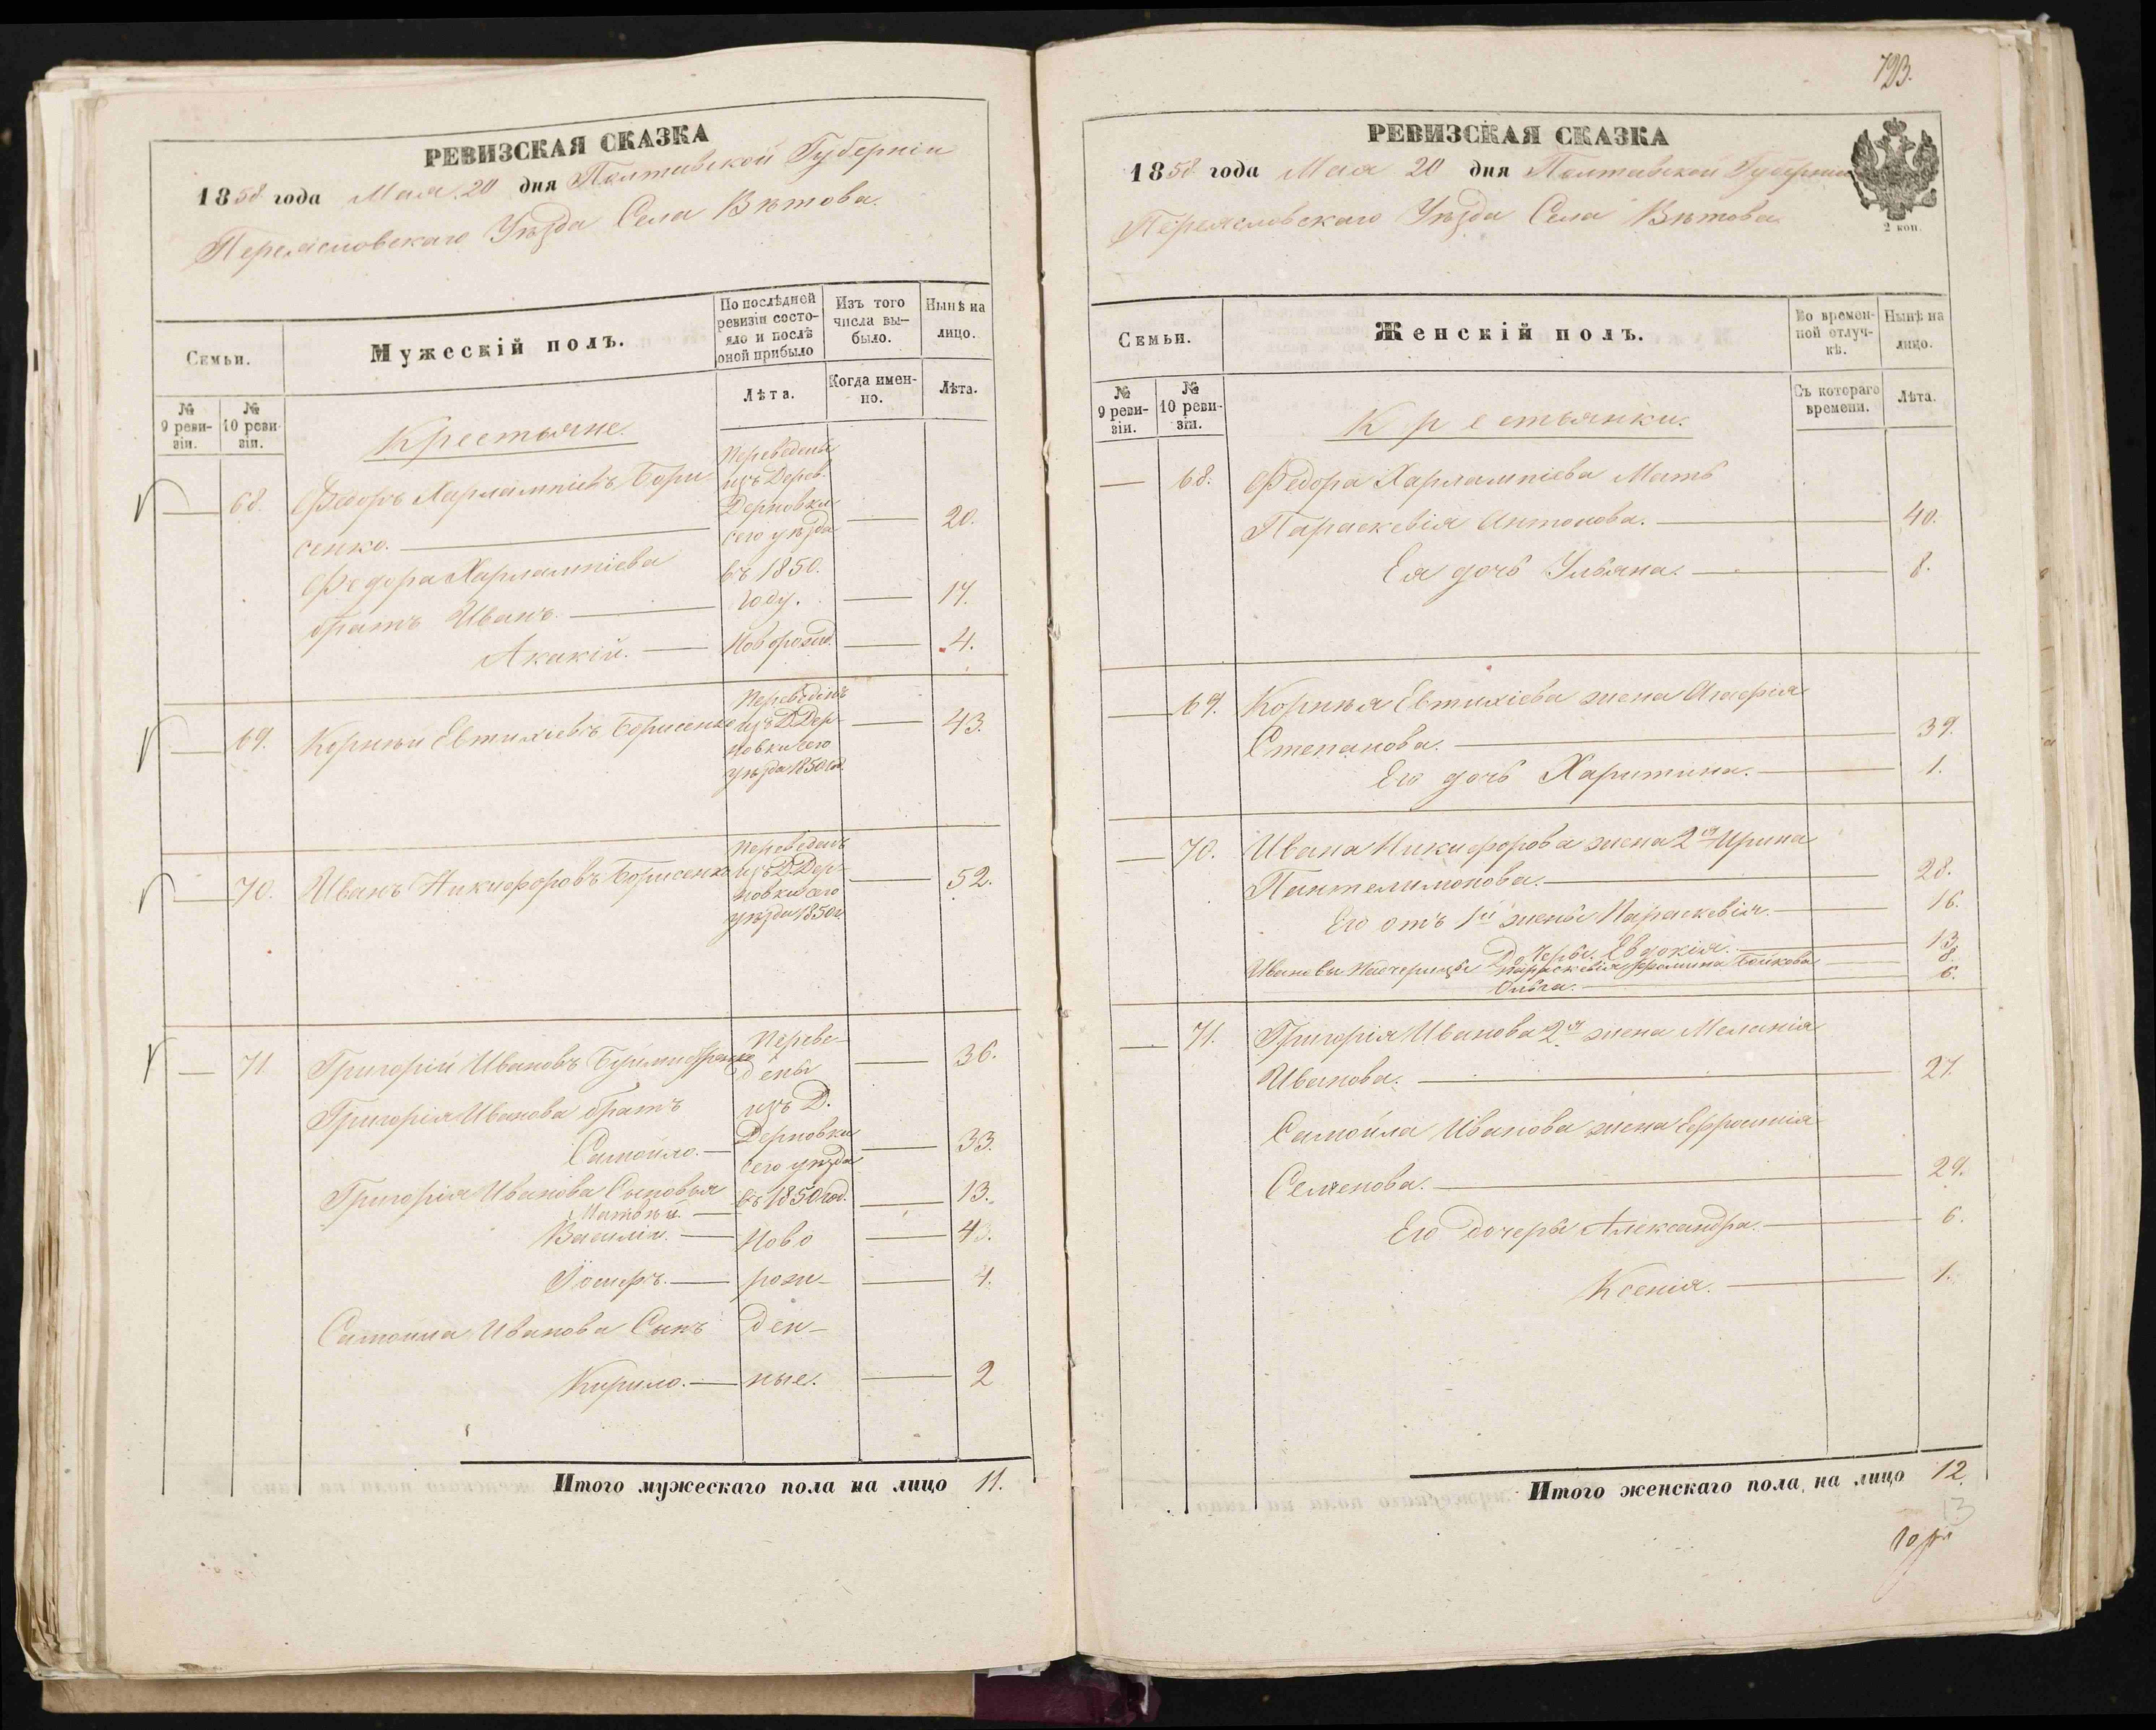 РЕВИЗСКАЯ СКАЗКА
1858 года Мая 20 дня Полтавской Губерніи
Переяславскаго Уѣзда Села Вѣтова.
Семьи.
Мужескій полъ.
По послѣдней ревизіи состояло и послѣ оной прибыло
Изъ того числа выбыло.
Нынѣ на лицо.
№ 9 ревизіи.
№ 10 ревизіи.
Лѣта.
Когда именно.
Лѣта.
Крестьяне.
68. Федоръ Харлампіевъ Бори-
сенко. Переведены изъ Дерев. Дерновки сего уѣзда 20.
Федора Харлампіева въ 1850.
братъ Иванъ. году. 17.
Акакій. Новорожд. 4.
69. Корнѣй Евтихіевъ Борисенко Переведенъ изъ Д. Дер-
новки сего уѣзда 1850 год. 43.
70. Иванъ Никифоровъ Борисенко Переведенъ изъ Д. Дер-
новки сего уѣзда 1850 г. 52.
71. Григорій Ивановъ Переве- 36.
дены
Григорія Иванова братъ изъ Д.
Самойло. Дерновки 33.
сего уѣзда
Григорія Иванова Сыновья въ 1850 год. 13.
Матвѣй.
Василій. Ново 4.
Іосифъ. рож- 1.
Самоила Иванова Сынъ ден-
Кирило. ные. 2
Итого мужескаго пола на лицо 11.
723.
РЕВИЗСКАЯ СКАЗКА
1858 года Мая 20 дня Полтавской Губерніи
Переяславскаго Уѣзда Села Вѣтова
2 коп.
Семьи.
Женскій полъ.
Во временной отлучкѣ.
Нынѣ на лицо.
№ 9 ревизіи.
№ 10 ревизіи.
Съ котораго времени.
Лѣта.
Крестьянки.
68. Федора Харлампіева Мать
Параскевія Антонова. 40.
Ея дочь Ульяна. 8.
69. Корнѣя Евтихіева жена
Степанова. 39.
Его дочь Харитина. 1.
70. Ивана Никифорова жена 2я Ирина
Пантелимонова. 28.
Его отъ 1й жены Параскевія. 16.
Дочеры. Евдокія. 13.
Ивановы Падчерицы Параскевія 8
Ольга. 6.
71. Григорія Иванова 2я жена Меланія
Иванова. 27.
Самойла Иванова жена Ефросинія
Семенова. 29.
Его дочеры Александра. 6.
Ксенія. 1.
Итого женскаго пола на лицо 12.
13